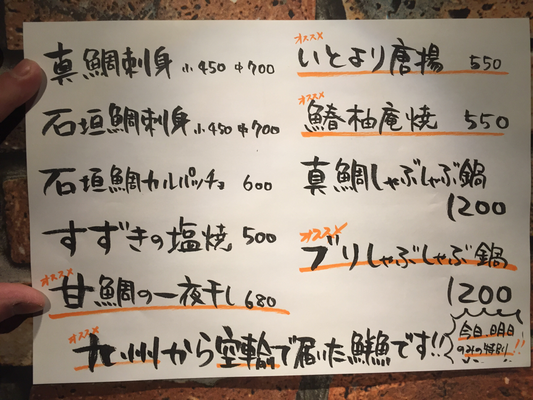 真鯛刺身 小450 中700
石垣鯛刺身 小450 中700
石垣鯛カルパッチョ 600
すずきの塩焼 500
オススメ
甘鯛の一夜干し 680
オススメ
いとより唐揚 550
オススメ
鰆柚庵焼 550
真鯛しゃぶしゃぶ鍋
1200
オススメ
ブリしゃぶしゃぶ鍋
1200
オススメ
九州から空輸で届いた鮮魚です!!
今日、明日
のみの特別!!